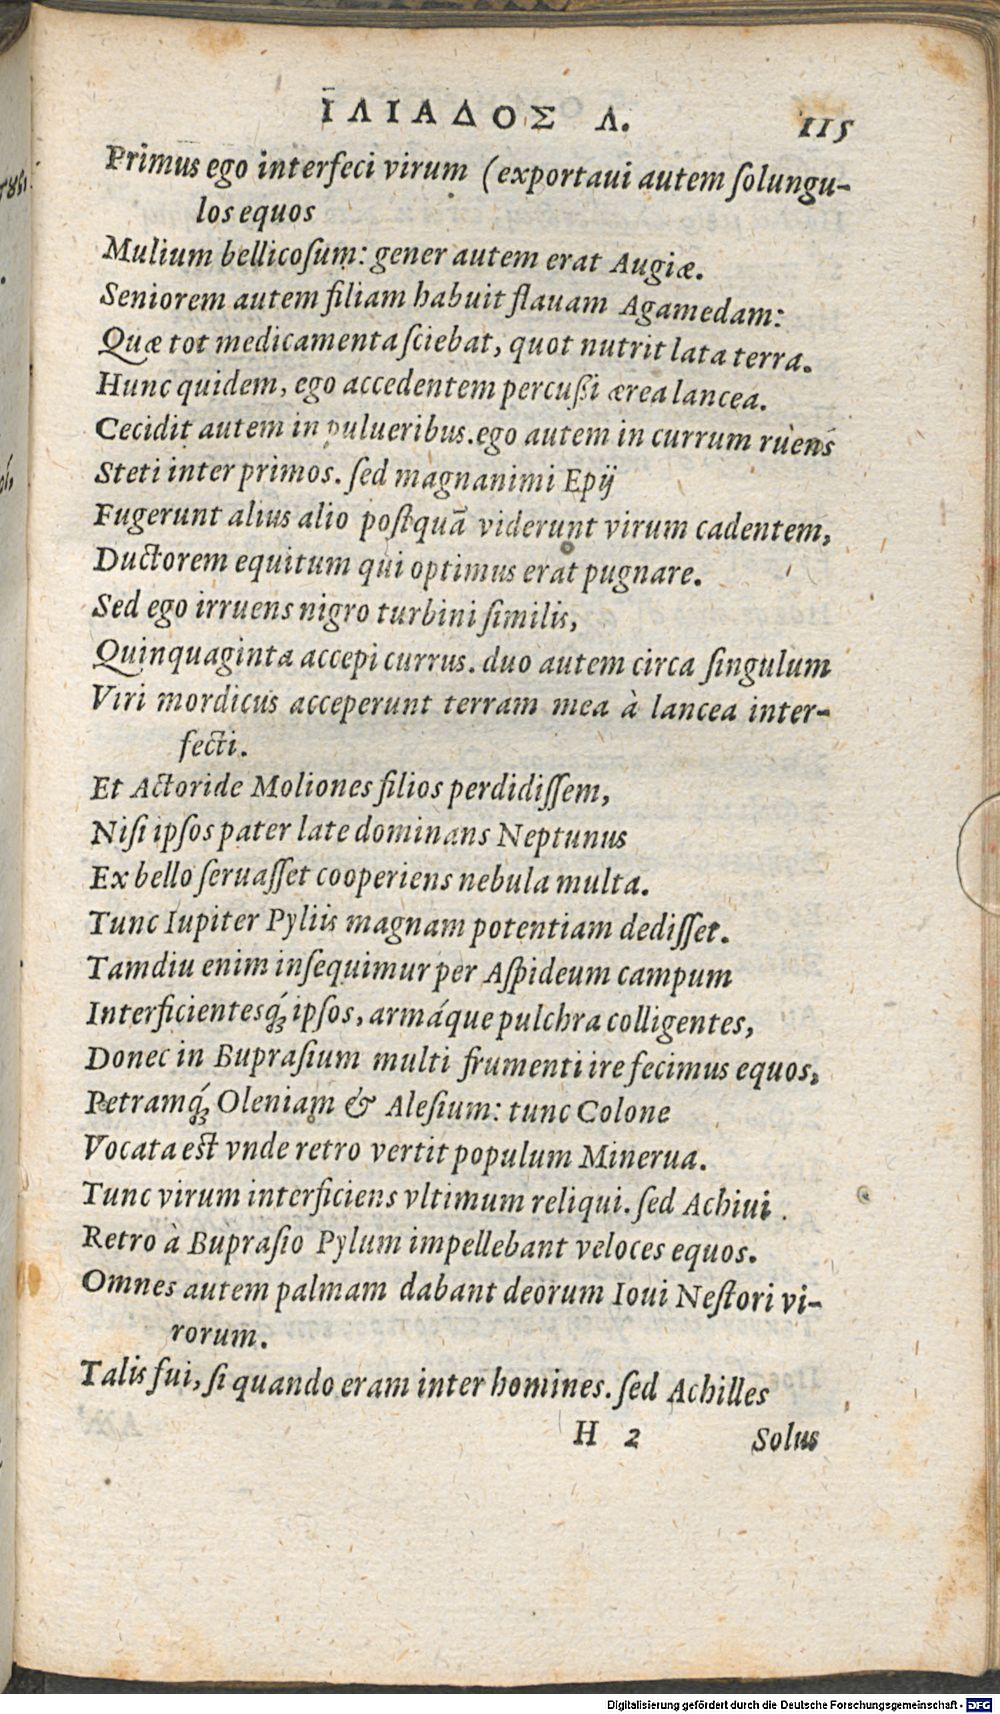 ΙΛΙΑΔΟΣ Λ. 115
Primus ego interfeci virum (exportaui autem ſolungu-
los equos
Mulium bellicoſum: gener autem erat Augiæ.
Seniorem autem filiam habuit flauam Agamedam:
Quæ tot medicamenta ſciebat, quot nutrit lata terra.
Hunc quidem, ego accedentem percuſſi ærea lancea.
Cecidit autem in pulueribus. ego autem in currum ruens
Steti inter primos. ſed magnanimi Epij
Fugerunt alius alio poſtquã viderunt virum cadentem,
Ductorem equitum qui optimus erat pugnare.
Sed ego irruens nigro turbini ſimilis,
Quinquaginta accepi currus. duo autem circa ſingulum
Viri mordicus acceperunt terram mea à lancea inter-
fecti.
Et Actoride Moliones filios perdidiſſem,
Niſi ipſos pater late dominans Neptunus
Ex bello ſeruaſſet cooperiens nebula multa.
Tunc Iupiter Pyliis magnam potentiam dediſſet.
Tamdiu enim inſequimur per Aſpideum campum
Interficientesq́; ipſos, armáque pulchra colligentes,
Donec in Bupraſium multi frumenti ire fecimus equos,
Petramq́; Oleniam & Aleſium: tunc Colone
Vocata eſt vnde retro vertit populum Minerua.
Tunc virum interficiens vltimum reliqui. ſed Achiui
Retro à Bupraſio Pylum impellebant veloces equos.
Omnes autem palmam dabant deorum Ioui Neſtori vi-
rorum.
Talis fui, ſi quando eram inter homines. ſed Achilles
H 2 Solus
Digitalisierung gefördert durch die Deutsche Forschungsgemeinschaft - DFG